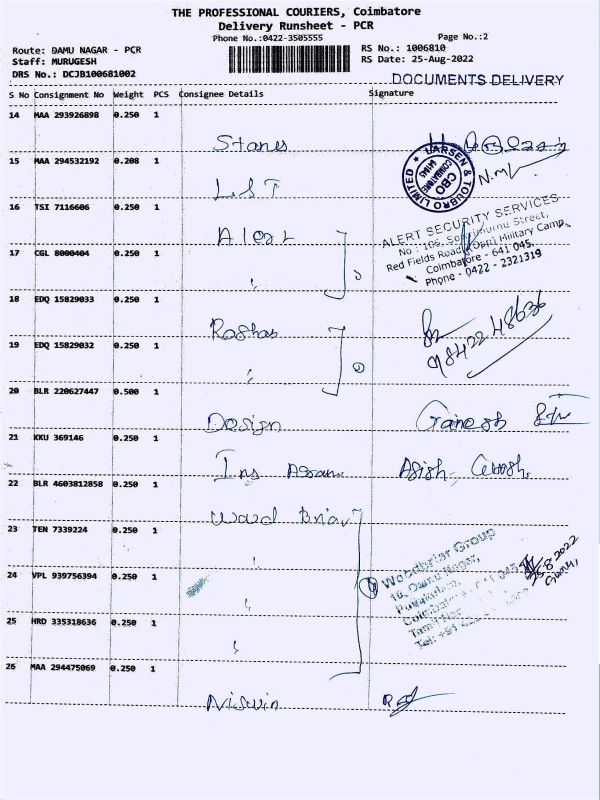 THE PROFESSIONAL COURIERS, Coimbatore
Delivery Runsheet - PCR
Phone No.:0422-3505555
Page No.:2
Route: DAMU NAGAR - PCR
RS No.: 1006810
Staff: MURUGESH
RS Date: 25-Aug-2022
DRS No.: DCJB100681002
DOCUMENTS DELIVERY
S No Consignment No Weight PCS Consignee Details Signature
14 MAA 293926898 0.250 1
Stanes
15 MAA 294532192 0.208 1
L&T
LARSEN & TOUBRO LIMITED
CBO
COIMBATORE
N.M
16 TSI 7116606 0.250 1
Alert
ALERT SECURITY SERVICES
No : 106, Street,
Red Fields Road (Opp) Military Camp,
Coimbatore - 641 045.
Phone - 0422 - 2321319
17 CGL 8000404 0.250 1
"
18 EDQ 15829033 0.250 1
Roshas
98422 48636
19 EDQ 15829032 0.250 1
"
20 BLR 220627447 0.500 1
Design Ganesh
21 KKU 369146 0.250 1
Ins Asish
22 BLR 4603812858 0.250 1
Wood Briar
23 TEN 7339224 0.250 1
"
Woodbriar Group
18, Damu Nagar,
Puliakulam,
Coimbatore - 641 045
25.8.2022
24 VPL 939756394 0.250 1
"
25 HRD 335318636 0.250 1
"
26 MAA 294475069 0.250 1
Niswin